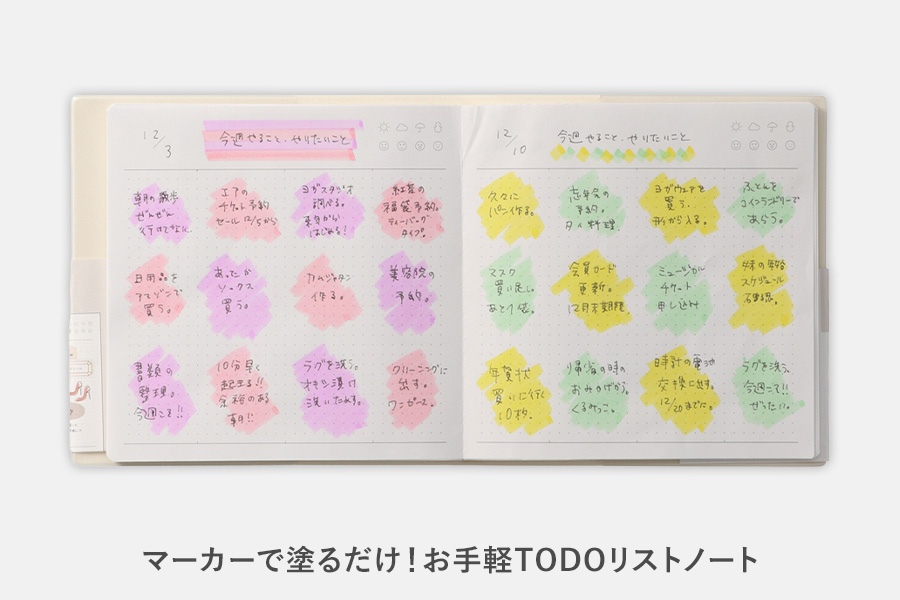 12/3
今週やること、やりたいこと
朝の散歩
ぜんぜん
行けてない。
エアの
チケット予約
セール12/5から
ヨガスタジオ
調べる。
来年から
はじめる!
紅茶の
福袋予約。
ティーバッグ
タイプ。
日用品を
アマゾンで
買う。
あったか
ソックス
買う。
カルジャタン
作る。
美容院の
予約。
書類の
整理。
今週こそ!!
10分早く
起きる!!
余裕のある
朝!!
ラグを洗う。
オキシ漬け
洗いたおす。
クリーニングに
出す。
ワンピース。
12/10
今週やること、やりたいこと
久々に
パン作る。
忘年会の
予約。
タイ料理。
ヨガウェアを
買う。
形から入る。
ふとんを
コインランドリーで
あらう。
マスク
買い足し。
あと1袋。
会員カード
更新。
12月末期限
ミュージカル
チケット
申し込み
スケジュール
確認。
年賀状
買いに行く
10枚。
帰省の時の
おみやげかう。
くるみっこ。
時計の電池
交換に出す。
12/20までに。
ラグを洗う。
今週こそ!!
ぜったい。
マーカーで塗るだけ!お手軽TODOリストノート